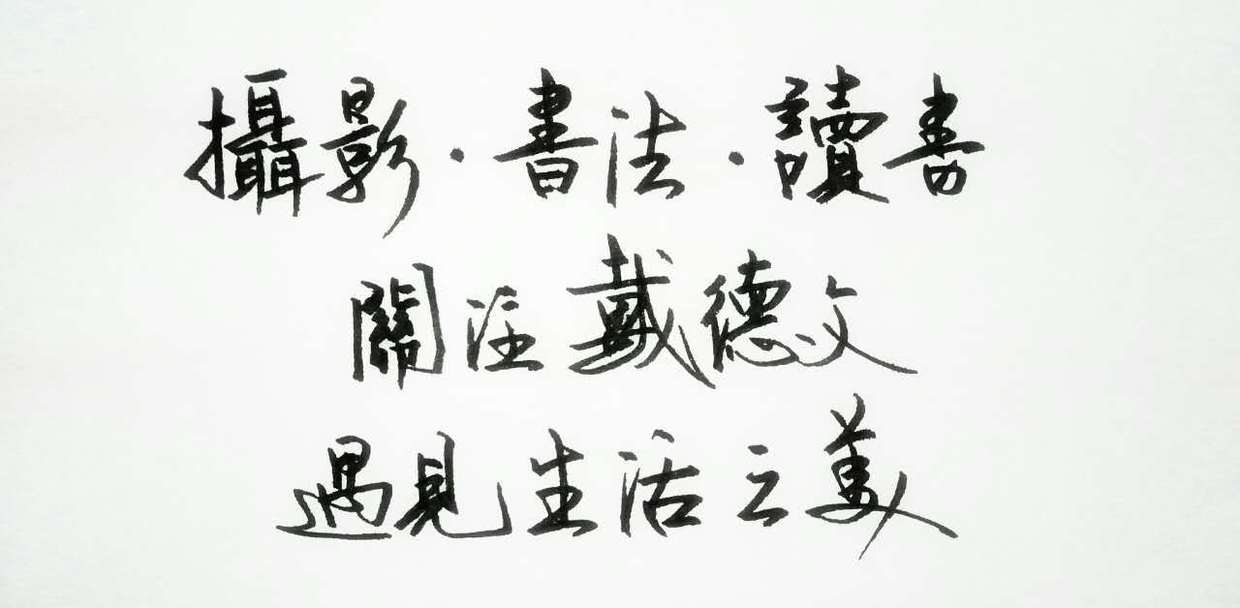 攝影·書法·讀書
關注戴德文
遇見生活之美